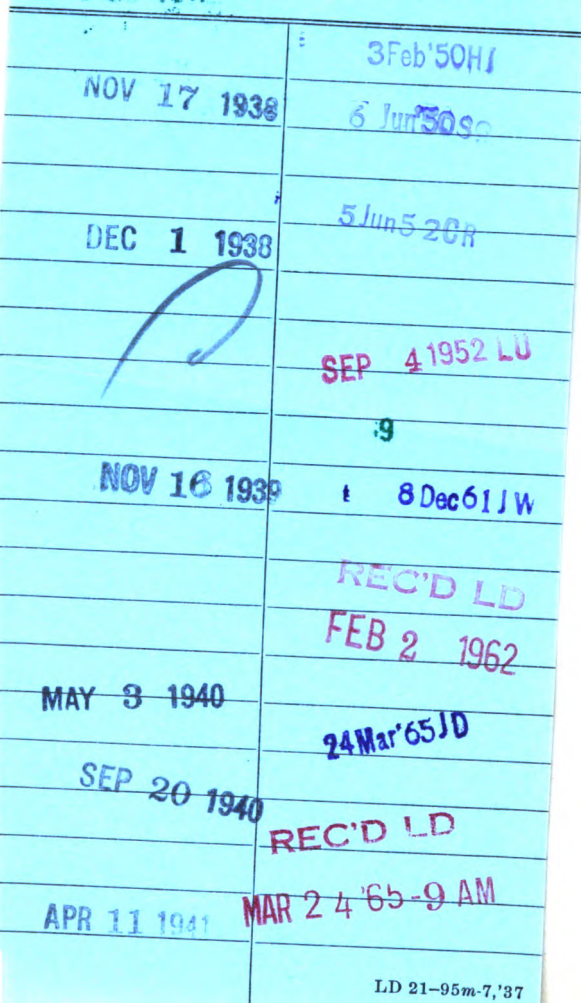 NOV 17 1938
DEC 1 1938
NOV 16 1939
MAY 3 1940
SEP 20 1940
APR 11 1941
3Feb'50HJ
6 Jun'50
5Jun52CR
SEP 4 1952 LU
9
t 8Dec61JW
REC'D LD
FEB 2 1962
24Mar'65JD
REC'D LD
MAR 24 '65-9 AM
LD 21–95m-7,'37